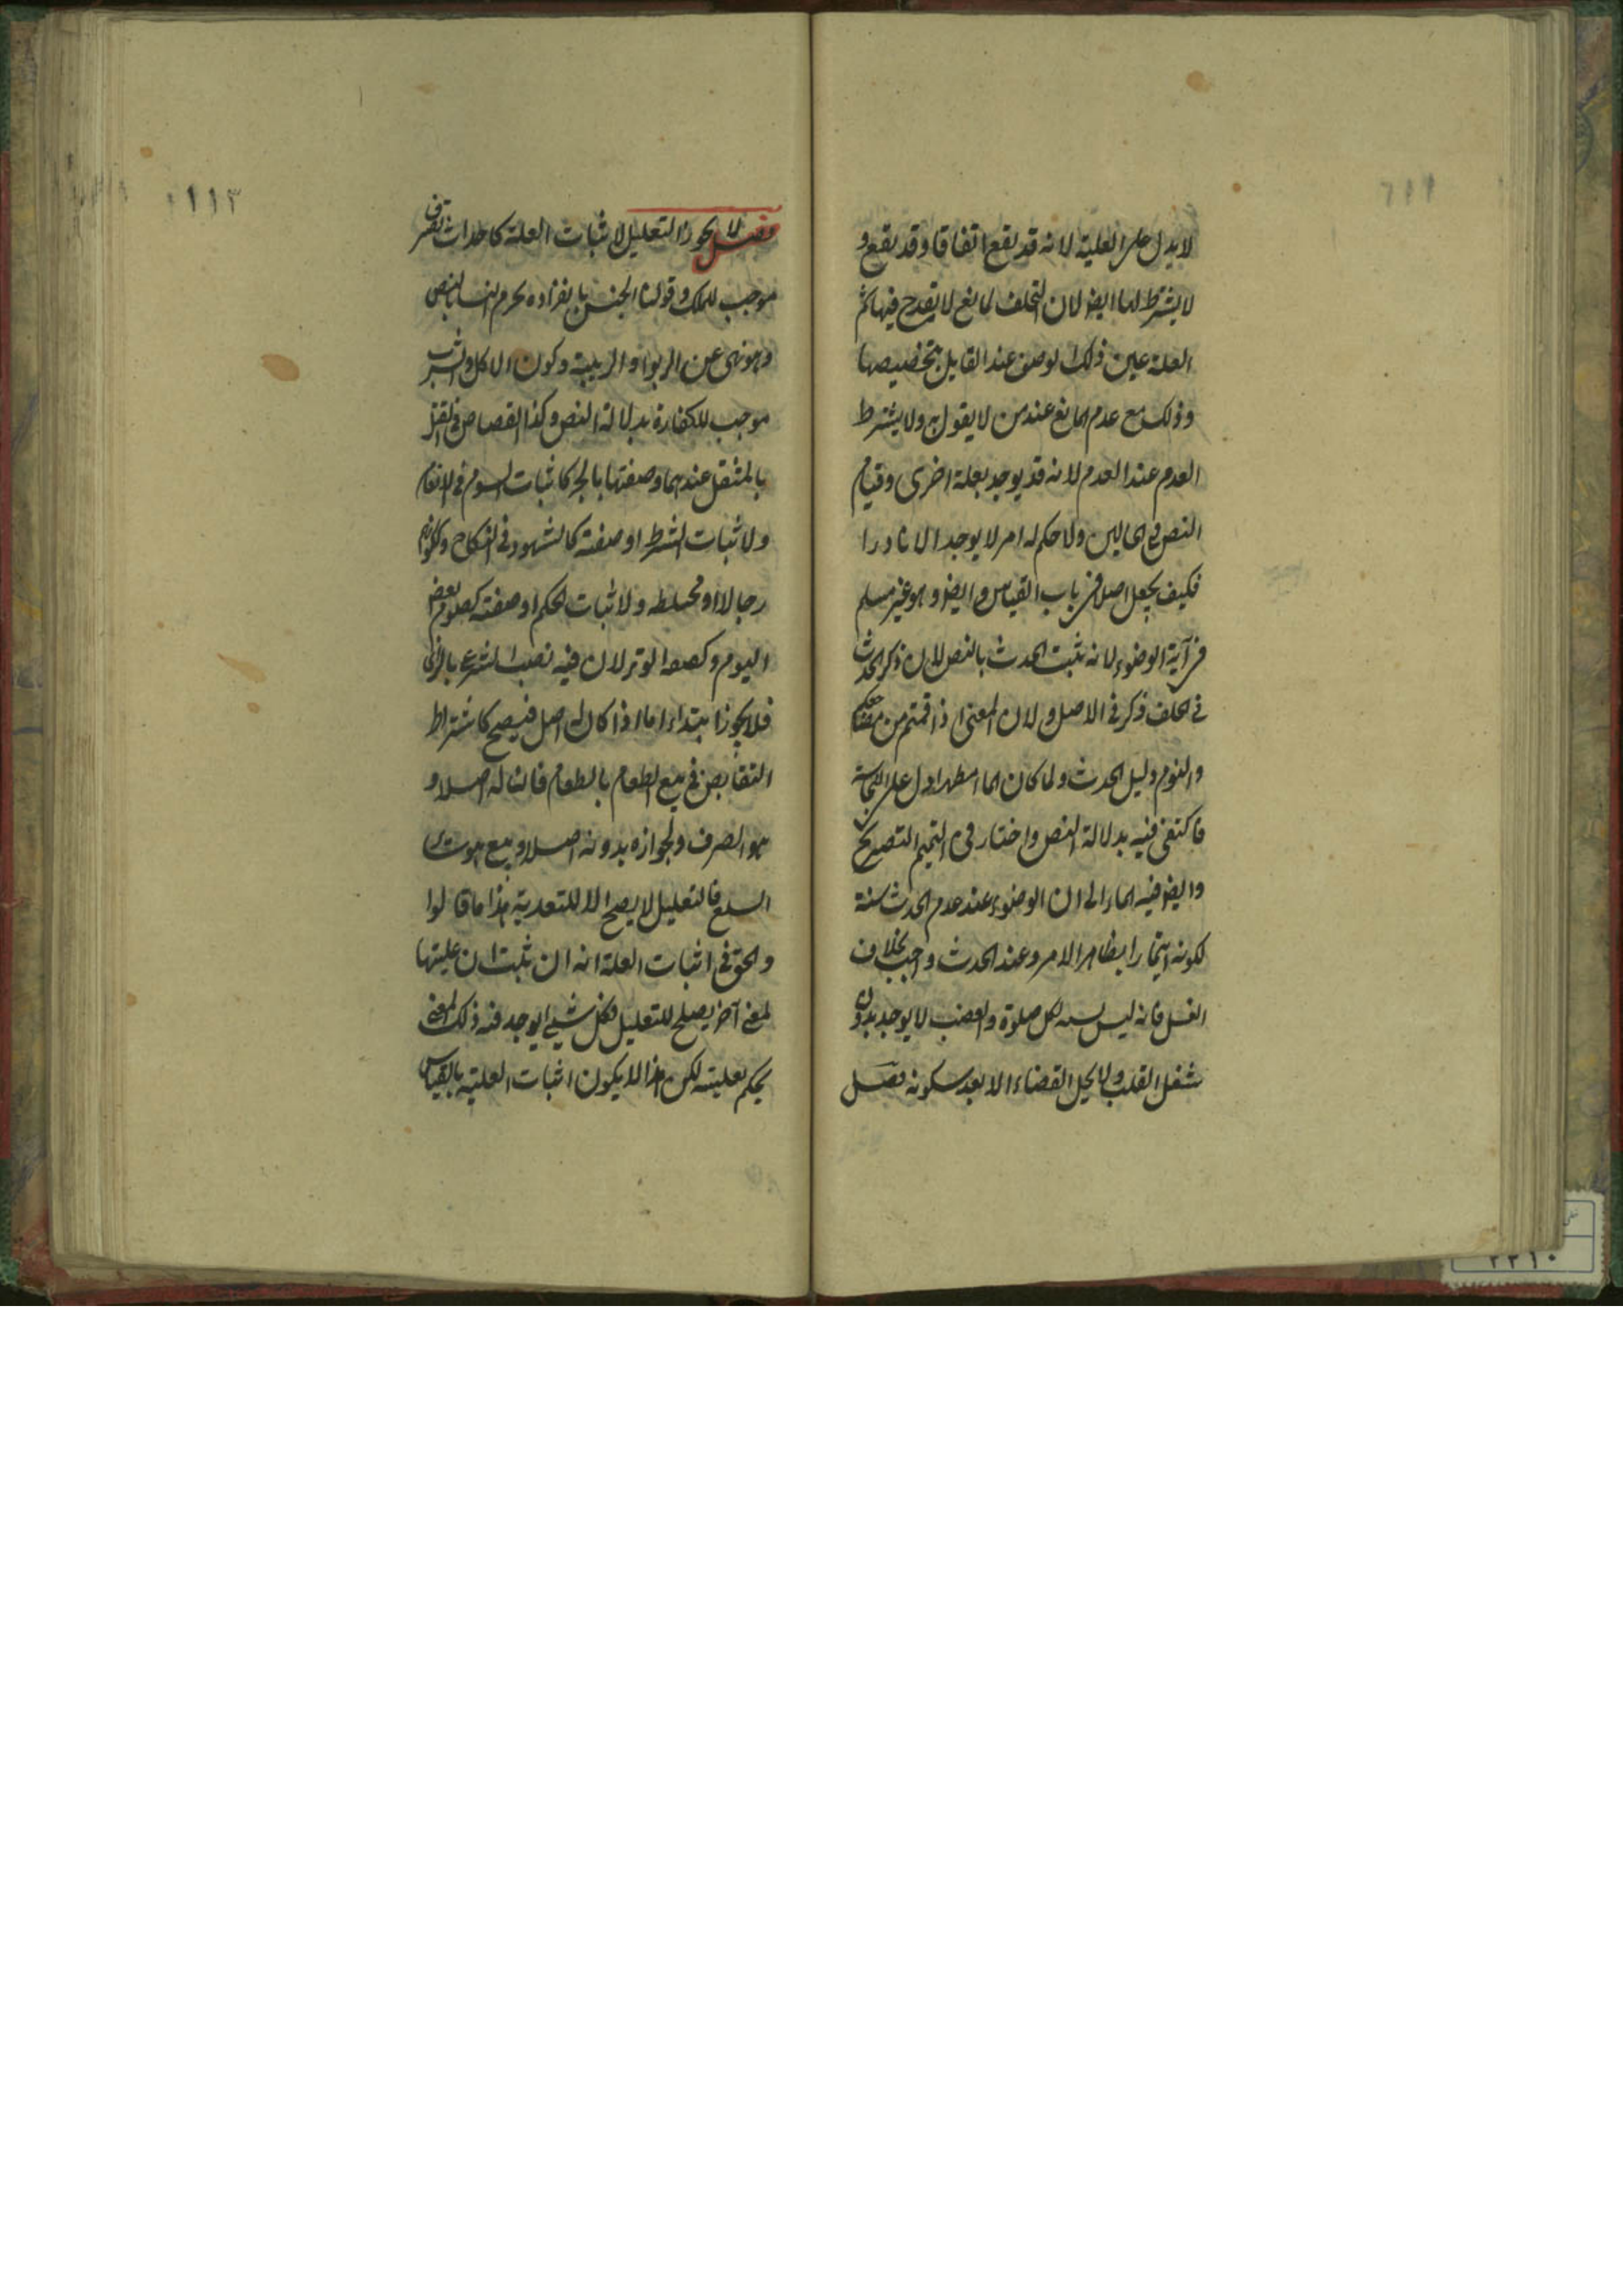 لا يدل على العلية لانه قد يقع اتفاقا وقد يقع و
لا يشترط لها ايضا لان التخلف لمانع لا يقدح فيها ثم
العلة عين ذلك الوصف عند القايل بتخصيصها
وذلك مع عدم المانع عند من لا يقول به ولا يشترط
العدم عند العدم لانه قد يوجد بعلة اخرى وقيام
النص في الحالين ولا حكم له امر لا يوجد الا نادرا
فكيف يجعل اصلا في باب القياس وايضا وهو غير مسلم
في آية الوضوء لانه يثبت الحدث بالنص لان ذكر الحدث
في الخلف ذكر في الاصل ولان المعنى اذا قمتم من مضاجعكم
والنوم دليل الحدث ولما كان الماء مطهرا دل على النجاسة
فاكتفى فيه بدلالة النص واختار في التيمم التصريح
وايضا فيه ايماء الى ان الوضوء عند عدم الحدث سنة
لكونه ايتمارا بظاهر الامر وعند الحدث واجب بخلاف
الغسل فانه ليس بسنة لكل صلوة والغضب لا يوجد بدون
شغل القلب ولا يحل القضاء الا بعد سكونه فصل
١١٣
فصل لا يجوز التعليل لاثبات العلة كاحداث تصرف
موجب للملك وقولنا الجنس بانفراده يحرم النساء بالنص
وهو نهى عن الربوا والريبة وكون الاكل والشرب
موجب للكفارة بدلالة النص وكذا القصاص في القتل
بالمثقل عندهما وصفتها بالجر كاثبات السوم في الانعام
ولاثبات الشرط او صفته كالشهود في النكاح وكونهم
رجالا او مختلطة ولاثبات الحكم او صفته كصوم بعض
اليوم وكصفة الوتر لان فيه نصب الشرع بالراى
فلا يجوز ابتداء اما اذا كان له اصل فيصح كاشتراط
التقابض في بيع الطعام بالطعام فان له اصلا و
هو الصرف ولجوازه بدونه اصلا وبيع
السلع فالتعليل لا يصح الا للتعدية هذا ما قالوا
والحق في اثبات العلة انه ان ثبت ان عليتها
لمعنى آخر يصلح للتعليل فكل شيء يوجد فيه ذلك المعنى
يحكم بعليته لكن هذا لا يكون اثبات العلية بالقياس